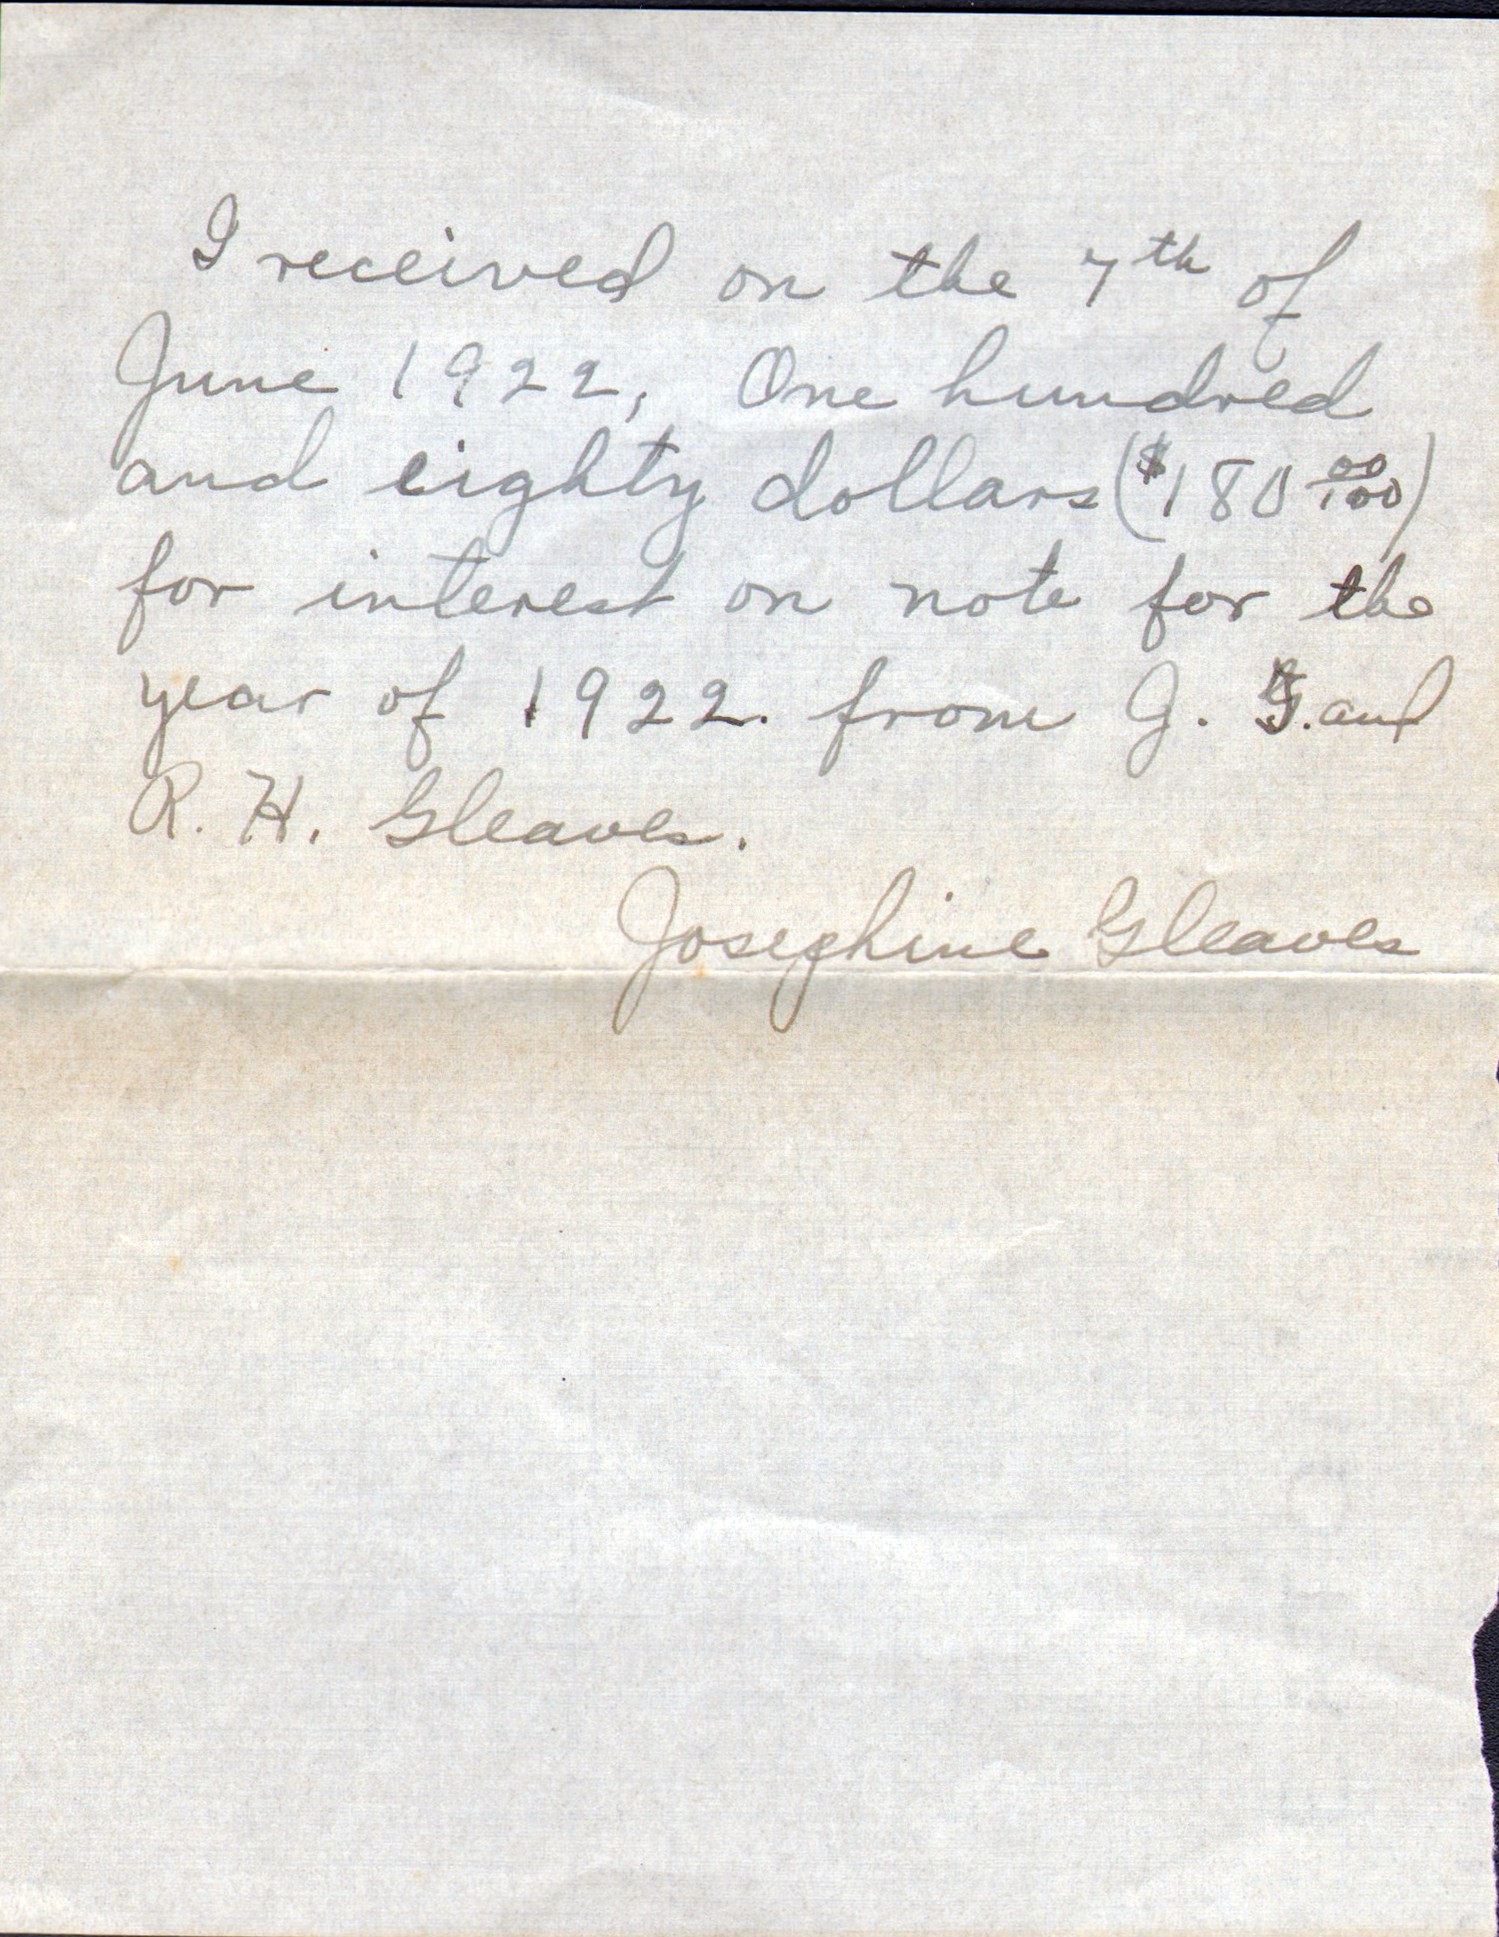 I received on the 7th of
June 1922, One hundred
and eighty dollars ($180 00/100)
for interest on note for the
year of 1922. from J. and
R. H. Gleaves.
Josephine Gleaves